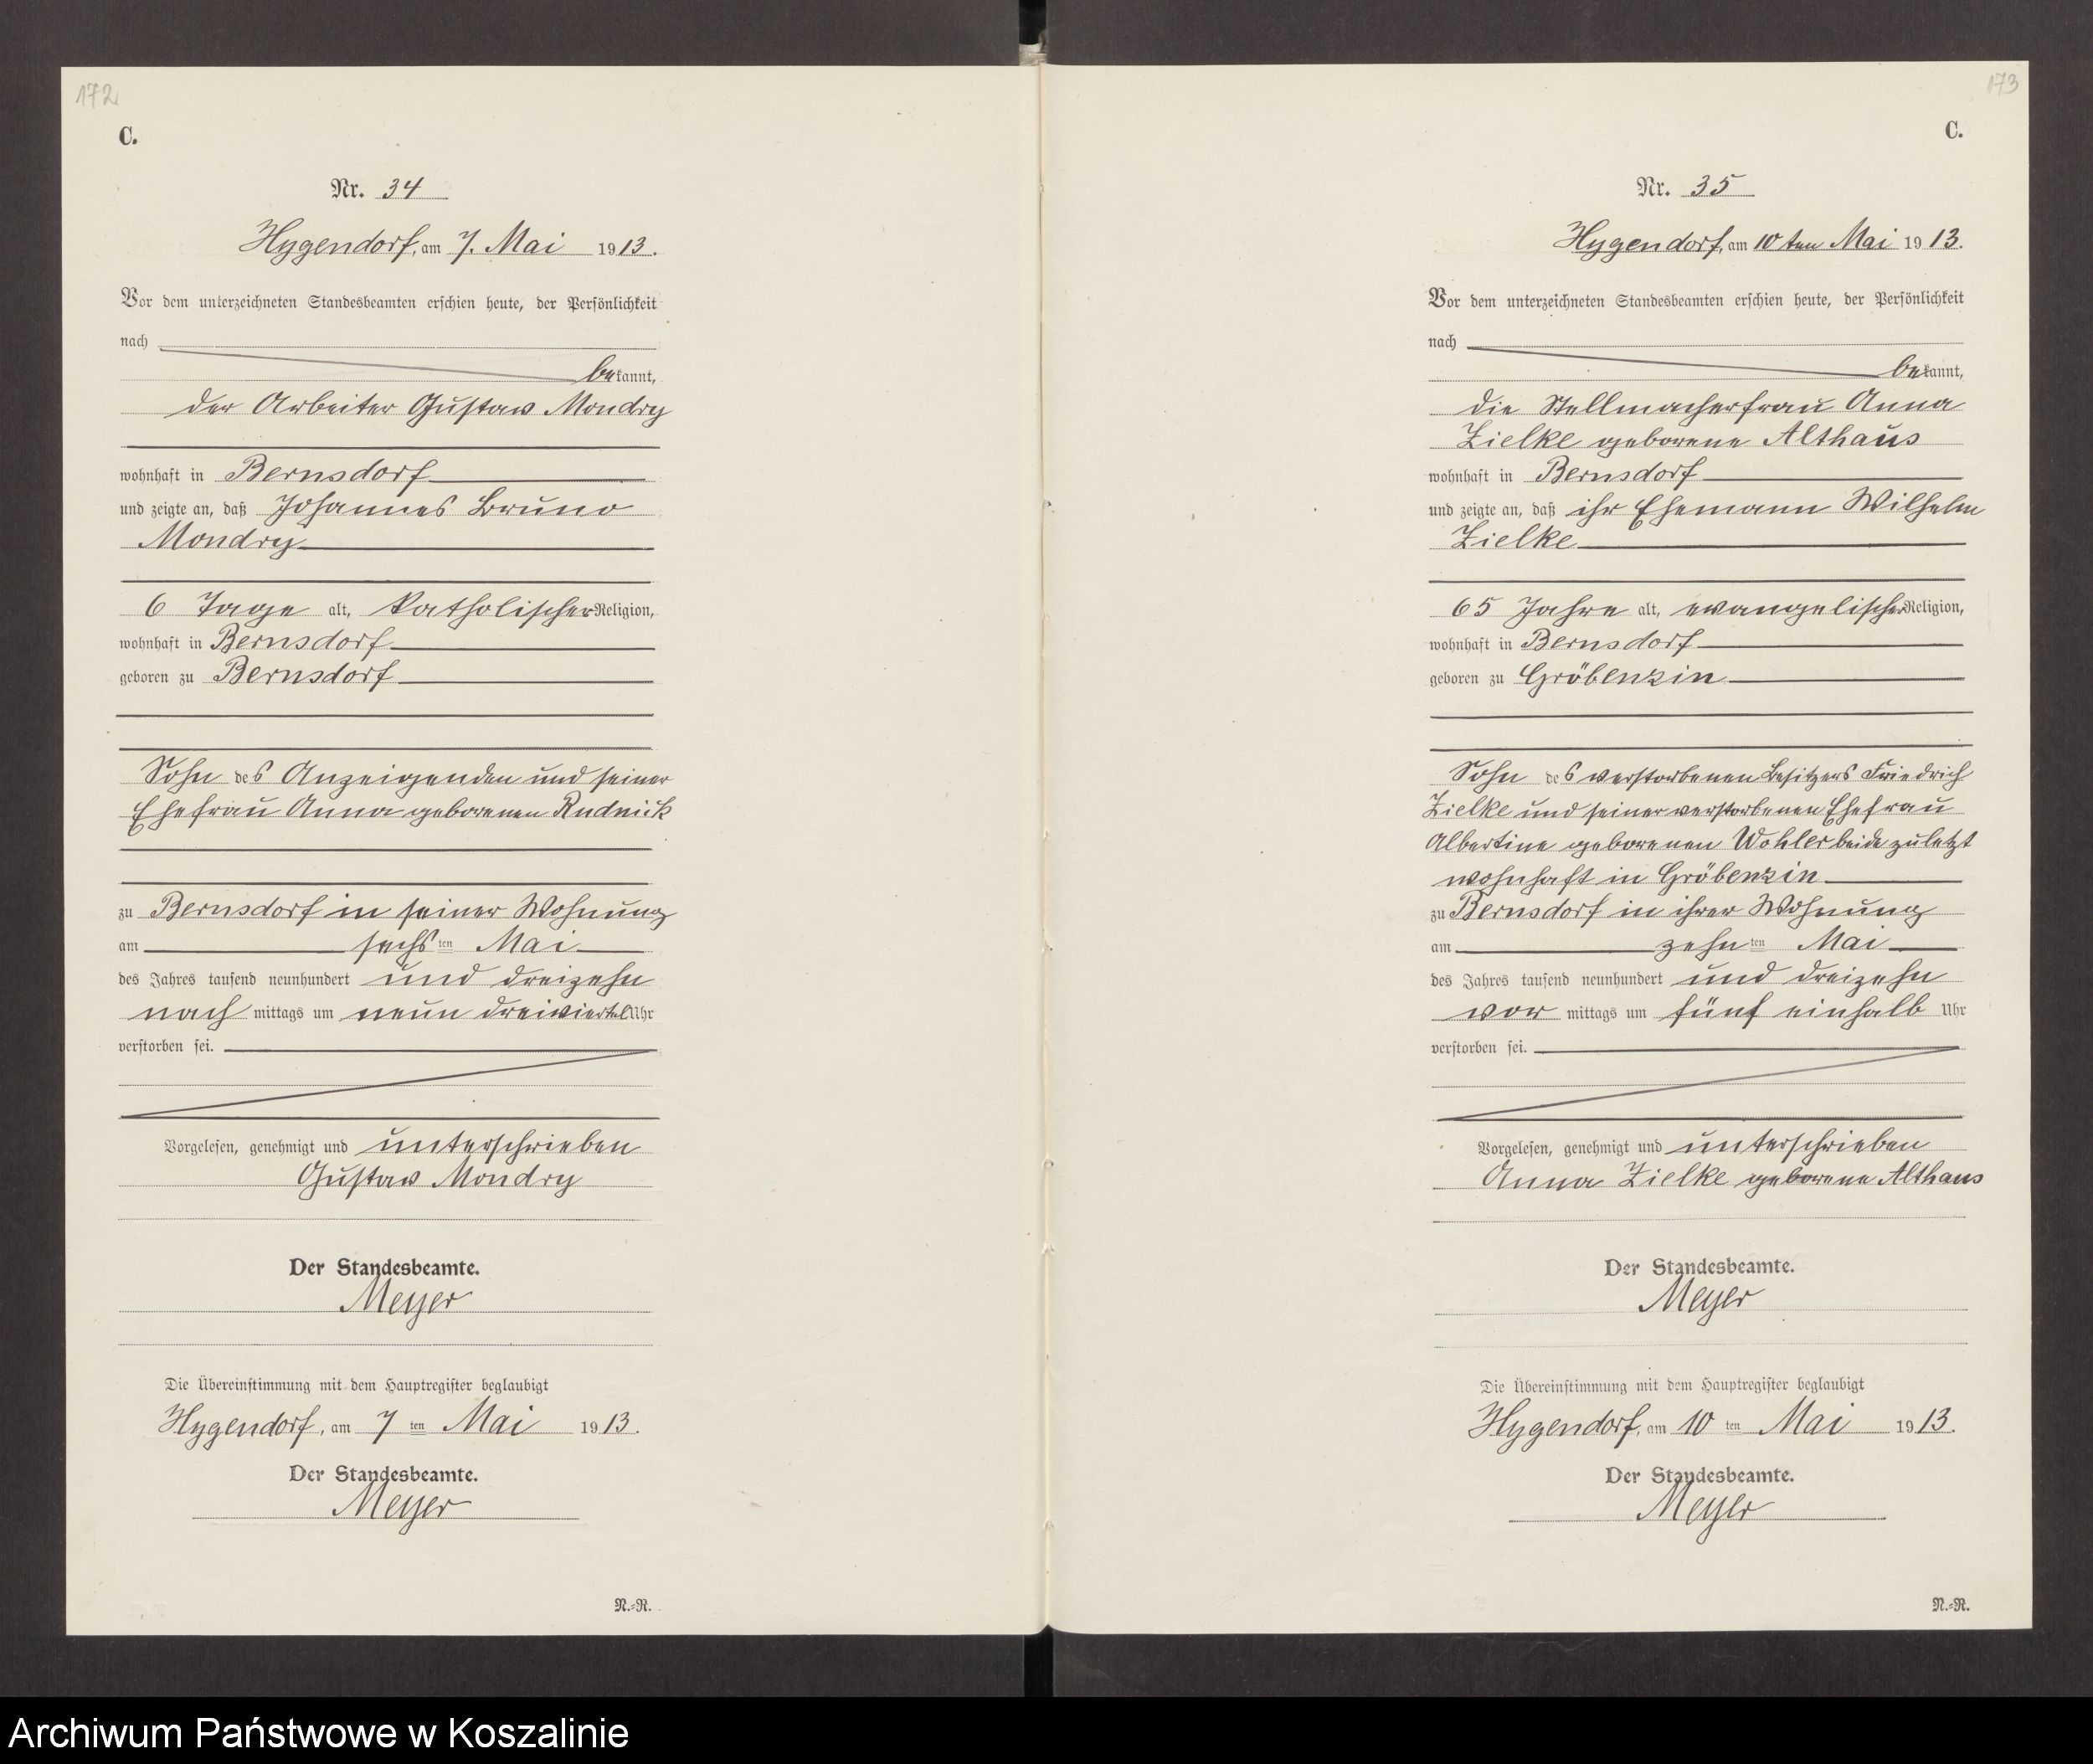 172
C.
Nr. 34
Hygendorf, am 7. Mai 1913.
Vor dem unterzeichneten Standesbeamten erschien heute, der Persönlichkeit
nach
bekannt,
der Arbeiter Gustav Mondry
wohnhaft in Bernsdorf
und zeigte an, daß Johannes Bruno
Mondry
6 Tage alt, katholischer Religion,
wohnhaft in Bernsdorf
geboren zu Bernsdorf
Sohn des Anzeigenden und seiner
Ehefrau Anna geborenen Rudnick
zu Bernsdorf in seiner Wohnung
am sechsten Mai
des Jahres tausend neunhundert und dreizehn
nach mittags um neun dreiviertel Uhr
verstorben sei.
Vorgelesen, genehmigt und unterschrieben
Gustav Mondry
Der Standesbeamte.
Meyer
Die Übereinstimmung mit dem Hauptregister beglaubigt
Hygendorf, am 7 ten Mai 1913.
Der Standesbeamte.
Meyer
N.-R.
173
C.
Nr. 35
Hygendorf, am 10 ten Mai 1913.
Vor dem unterzeichneten Standesbeamten erschien heute, der Persönlichkeit
nach
bekannt,
die Stellmacherfrau Anna
Zielke geborene Althaus
wohnhaft in Bernsdorf
und zeigte an, daß ihr Ehemann Wilhelm
Zielke
65 Jahre alt, evangelischer Religion,
wohnhaft in Bernsdorf
geboren zu Gröbenzin
Sohn des verstorbenen Besitzers Friedrich
Zielke und seiner verstorbenen Ehefrau
Albertine geborenen Wohler beide zuletzt
wohnhaft in Gröbenzin
zu Bernsdorf in ihrer Wohnung
am zehnten Mai
des Jahres tausend neunhundert und dreizehn
vor mittags um fünf einhalb Uhr
verstorben sei.
Vorgelesen, genehmigt und unterschrieben
Anna Zielke geborene Althaus
Der Standesbeamte.
Meyer
Die Übereinstimmung mit dem Hauptregister beglaubigt
Hygendorf, am 10 ten Mai 1913.
Der Standesbeamte.
Meyer
N.-R.
Archiwum Państwowe w Koszalinie